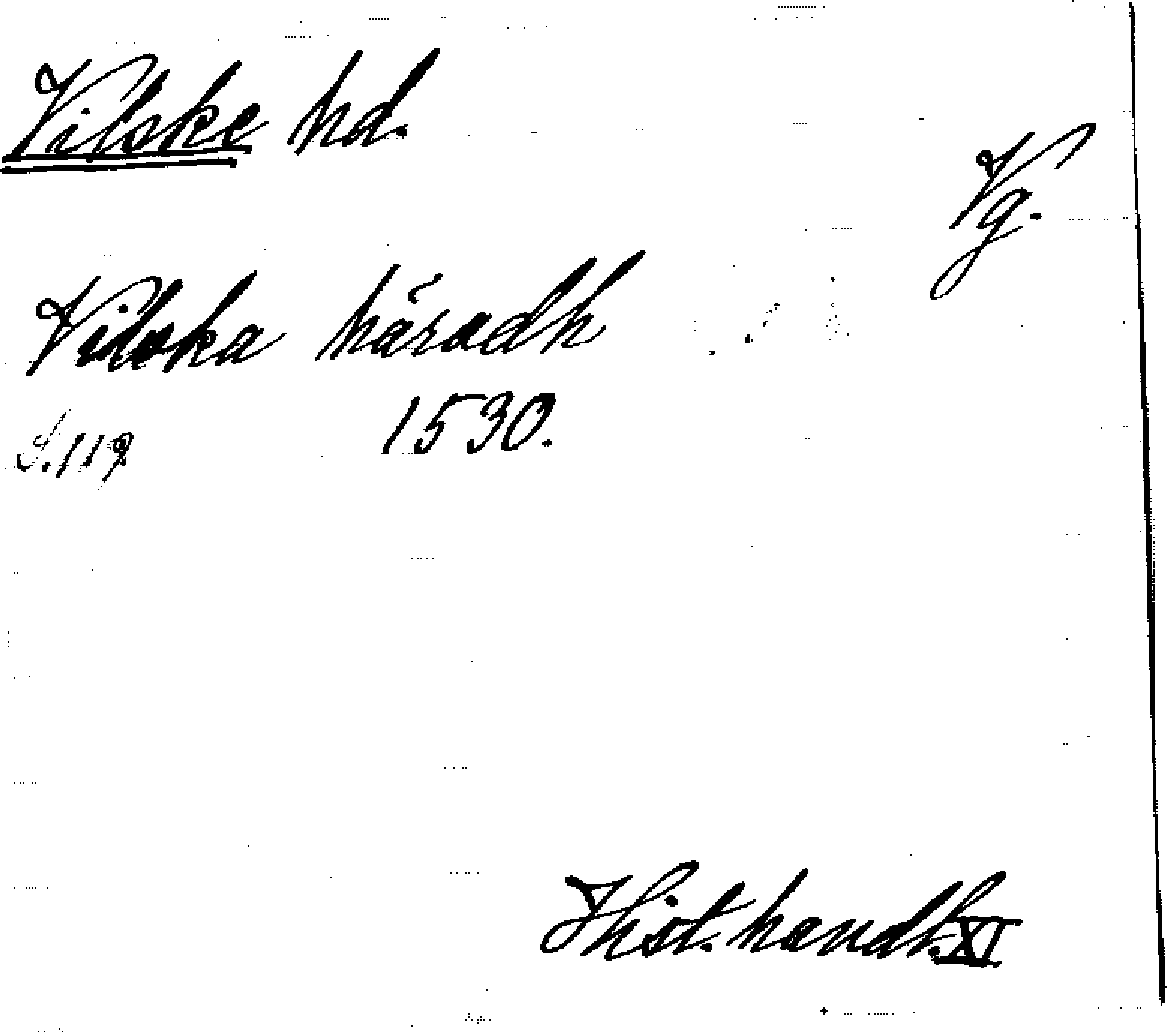 Vilske hd.
Vg.
Vilska häradh
S. 119 1530.
Hist. handl. XI